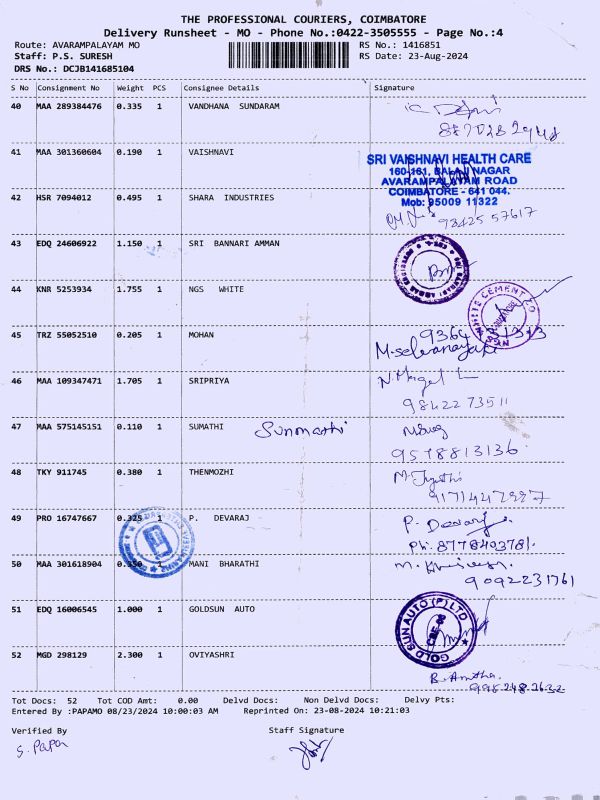 THE PROFESSIONAL COURIERS, COIMBATORE
Delivery Runsheet - MO - Phone No.:0422-3505555 - Page No.:4
Route: AVARAMPALAYAM MO RS No.: 1416851
Staff: P.S. SURESH RS Date: 23-Aug-2024
DRS No.: DCJB141685104
S No Consignment No Weight PCS Consignee Details Signature
40 MAA 289384476 0.335 1 VANDHANA SUNDARAM
41 MAA 301360604 0.190 1 VAISHNAVI
SRI VAISHNAVI HEALTH CARE
160-161, BALAJI NAGAR
AVARAMPALAYAM ROAD
COIMBATORE - 641 044.
Mob: 95009 11322
42 HSR 7094012 0.495 1 SHARA INDUSTRIES
93425 57617
43 EDQ 24606922 1.150 1 SRI BANNARI AMMAN
44 KNR 5253934 1.755 1 NGS WHITE
CEMENT
45 TRZ 55052510 0.205 1 MOHAN
46 MAA 109347471 1.705 1 SRIPRIYA
9842273511
47 MAA 575145151 0.110 1 SUMATHI Sunmathi
9578813136
48 TKY 911745 0.380 1 THENMOZHI
49 PRO 16747667 0.325 1 P. DEVARAJ P. Devaraj
Ph: 8778403781.
50 MAA 301618904 0.350 1 MANI BHARATHI
9092231761
51 EDQ 16006545 1.000 1 GOLDSUN AUTO
GOLD SUN AUTO (P) LTD
CBE-06
52 MGD 298129 2.300 1 OVIYASHRI
B. Amitha
Tot Docs: 52 Tot COD Amt: 0.00 Delvd Docs: Non Delvd Docs: Delvy Pts:
Entered By :PAPAMO 08/23/2024 10:00:03 AM Reprinted On: 23-08-2024 10:21:03
Verified By Staff Signature
S. Papa